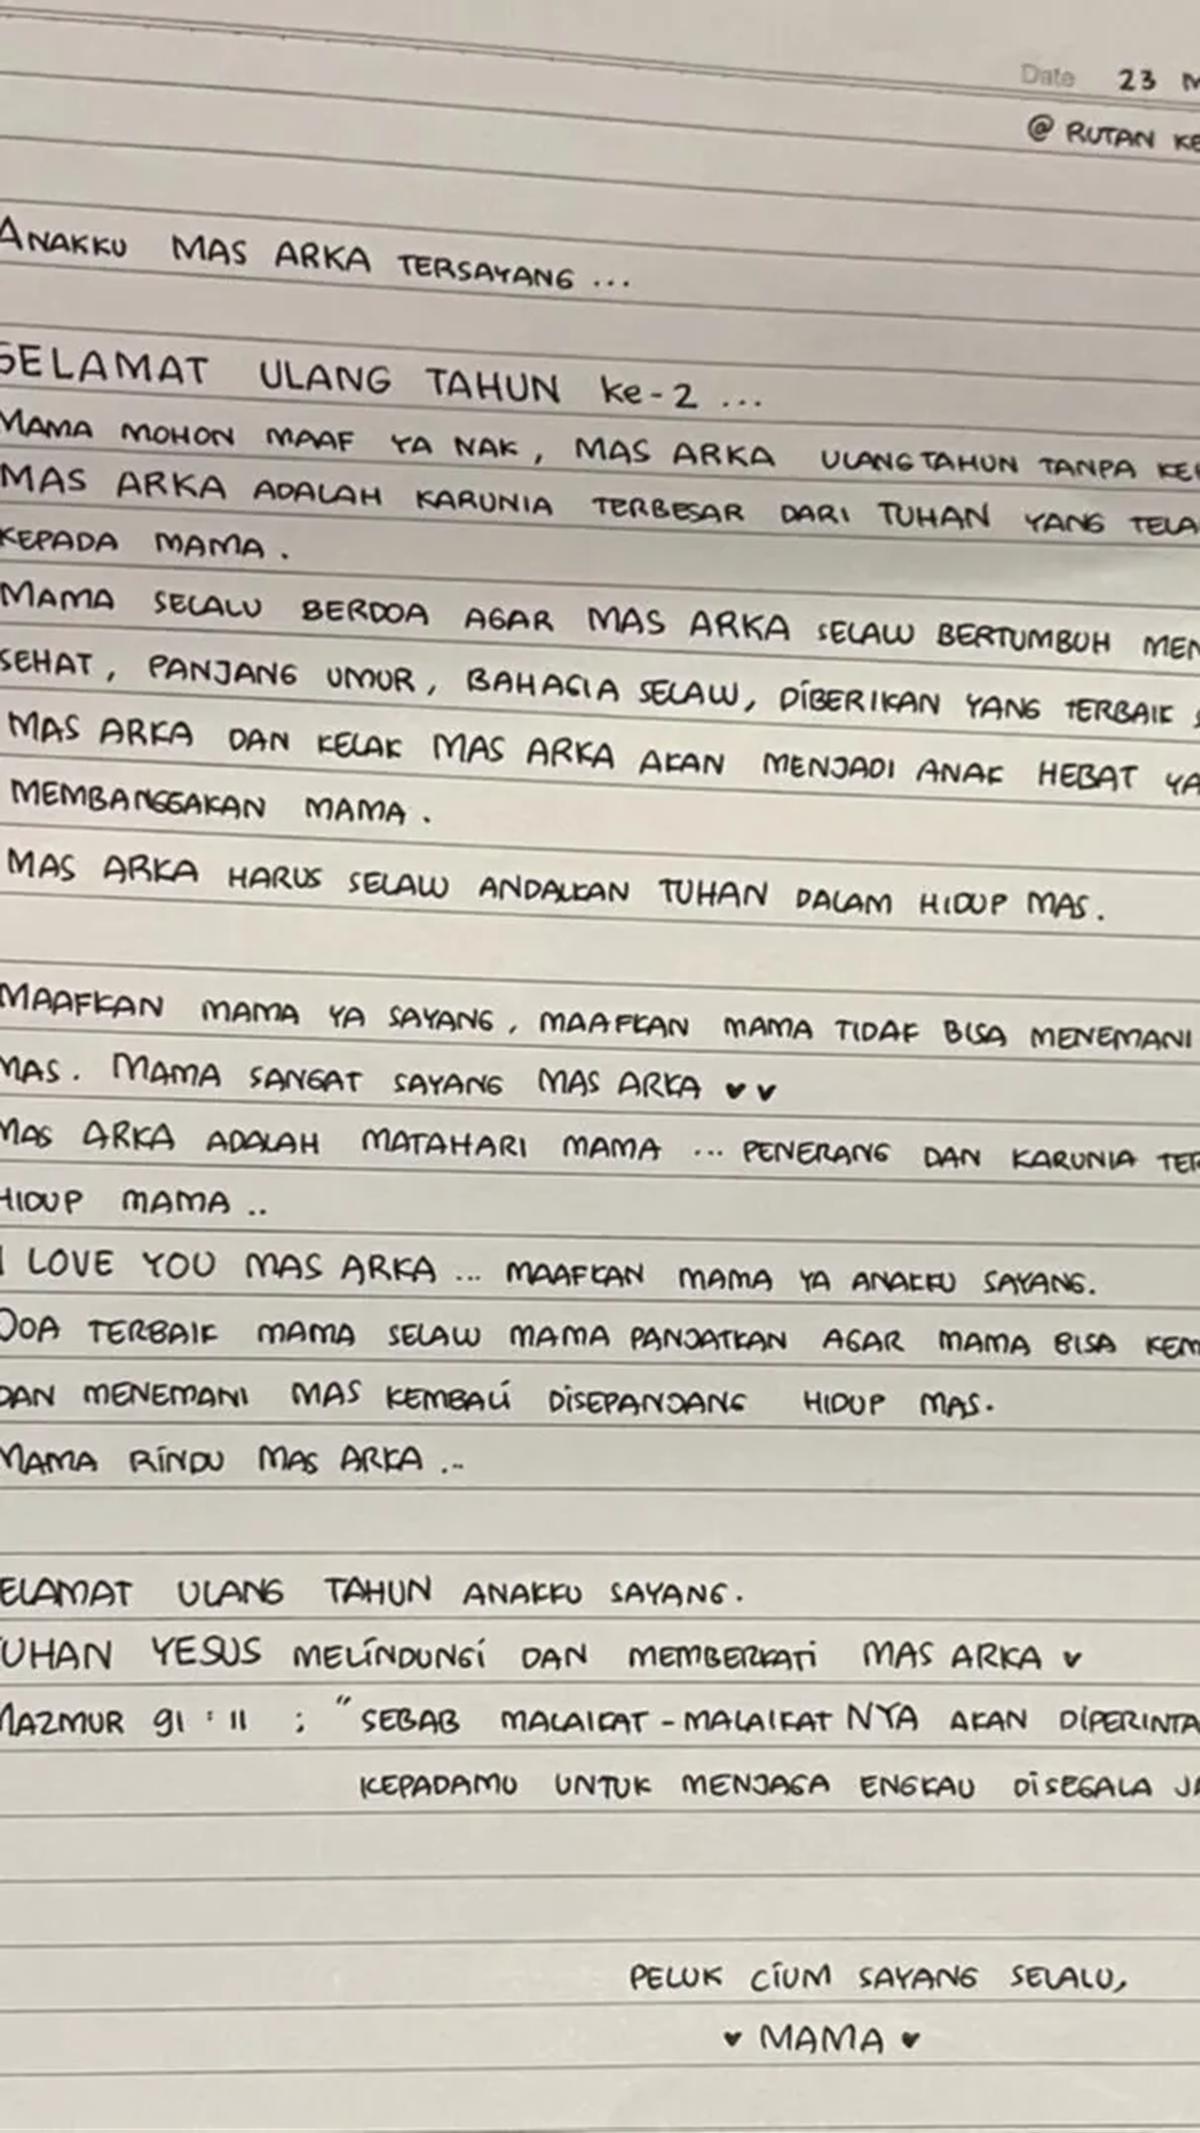 Date 23 M
@ RUTAN KE
ANAKKU MAS ARKA TERSAYANG ...
SELAMAT ULANG TAHUN ke-2 ...
MAMA MOHON MAAF YA NAK, MAS ARKA ULANGTAHUN TANPA KE
MAS ARKA ADALAH KARUNIA TERBESAR DARI TUHAN YANG TELA
KEPADA MAMA.
MAMA SELALU BERDOA AGAR MAS ARKA SELALU BERTUMBUH MEN
SEHAT, PANJANG UMUR, BAHAGIA SELALU, DIBERIKAN YANG TERBAIK
MAS ARKA DAN KELAK MAS ARKA AKAN MENJADI ANAK HEBAT YA
MEMBANGGAKAN MAMA.
MAS ARKA HARUS SELALU ANDALKAN TUHAN DALAM HIDUP MAS.
MAAFKAN MAMA YA SAYANG, MAAFKAN MAMA TIDAK BISA MENEMANI
MAS. MAMA SANGAT SAYANG MAS ARKA ♥♥
MAS ARKA ADALAH MATAHARI MAMA ... PENERANG DAN KARUNIA TER
HIDUP MAMA ..
I LOVE YOU MAS ARKA ... MAAFKAN MAMA YA ANAKKU SAYANG.
DOA TERBAIK MAMA SELALU MAMA PANJATKAN AGAR MAMA BISA KEM
DAN MENEMANI MAS KEMBALI DISEPANJANG HIDUP MAS.
MAMA RINDU MAS ARKA ...
ELAMAT ULANG TAHUN ANAKKU SAYANG.
UHAN YESUS MELINDUNGI DAN MEMBERKATI MAS ARKA ♥
MAZMUR 91:11 ; "SEBAB MALAIKAT-MALAIKAT NYA AKAN DIPERINTA
KEPADAMU UNTUK MENJAGA ENGKAU DISEGALA JA
PELUK CIUM SAYANG SELALU,
♥ MAMA ♥